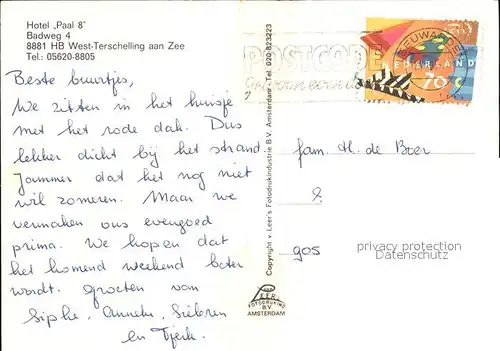 Hotel „Paal 8"
Badweg 4
8881 HB West-Terschelling aan Zee
Tel.: 05620-8805
Beste buurtjes,
We zitten in het huisje
met het rode dak. Dus
lekker dicht bij het strand
Jammer dat het nog niet
wil zomeren. Maar we
vermaken ons evengoed
prima. We hopen dat
het komend weekend beter
wordt. Groeten van
Siphe, Anneke, Siebren
en Tjerk.
Copyright v. Leer's Fotodrukindustrie B.V. Amsterdam - Tel. 020-823223
VAN LEER
FOTODRUKIND.
B.V.
AMSTERDAM
POSTCODE
LEEUWARDEN
NEDERLAND
70 c
fam. H. de Boer
gos
privacy protection
Datenschutz